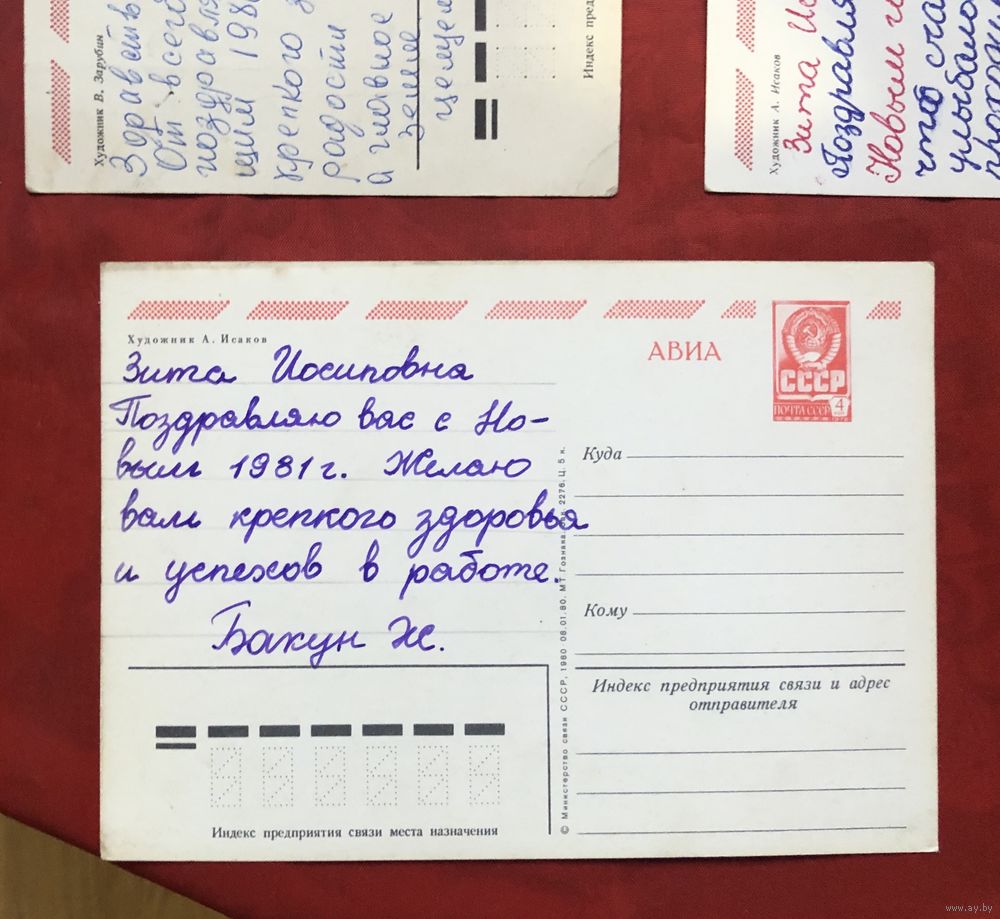 Художник В. Зарубин
Здравств
От всего
поздравля
щим 198
крепкого з
радости
а главное
Земле
Индекс пред
Художник А. Исаков
Зита Ис
Поздравля
Новым г
что сча
улыбало
проходи
Художник А. Исаков
АВИА
СССР
ПОЧТА СССР 4
Зита Иосиповна
Поздравляю вас с Но-
вым 1981г. Желаю
вам крепкого здоровья
и успехов в работе.
Бакун Ж.
Куда
Кому
Индекс предприятия связи и адрес
отправителя
Индекс предприятия связи места назначения
© Министерство связи СССР, 1980 08.01.80. МТ Гознака. 2276. Ц. 5 к.
www.ay.by